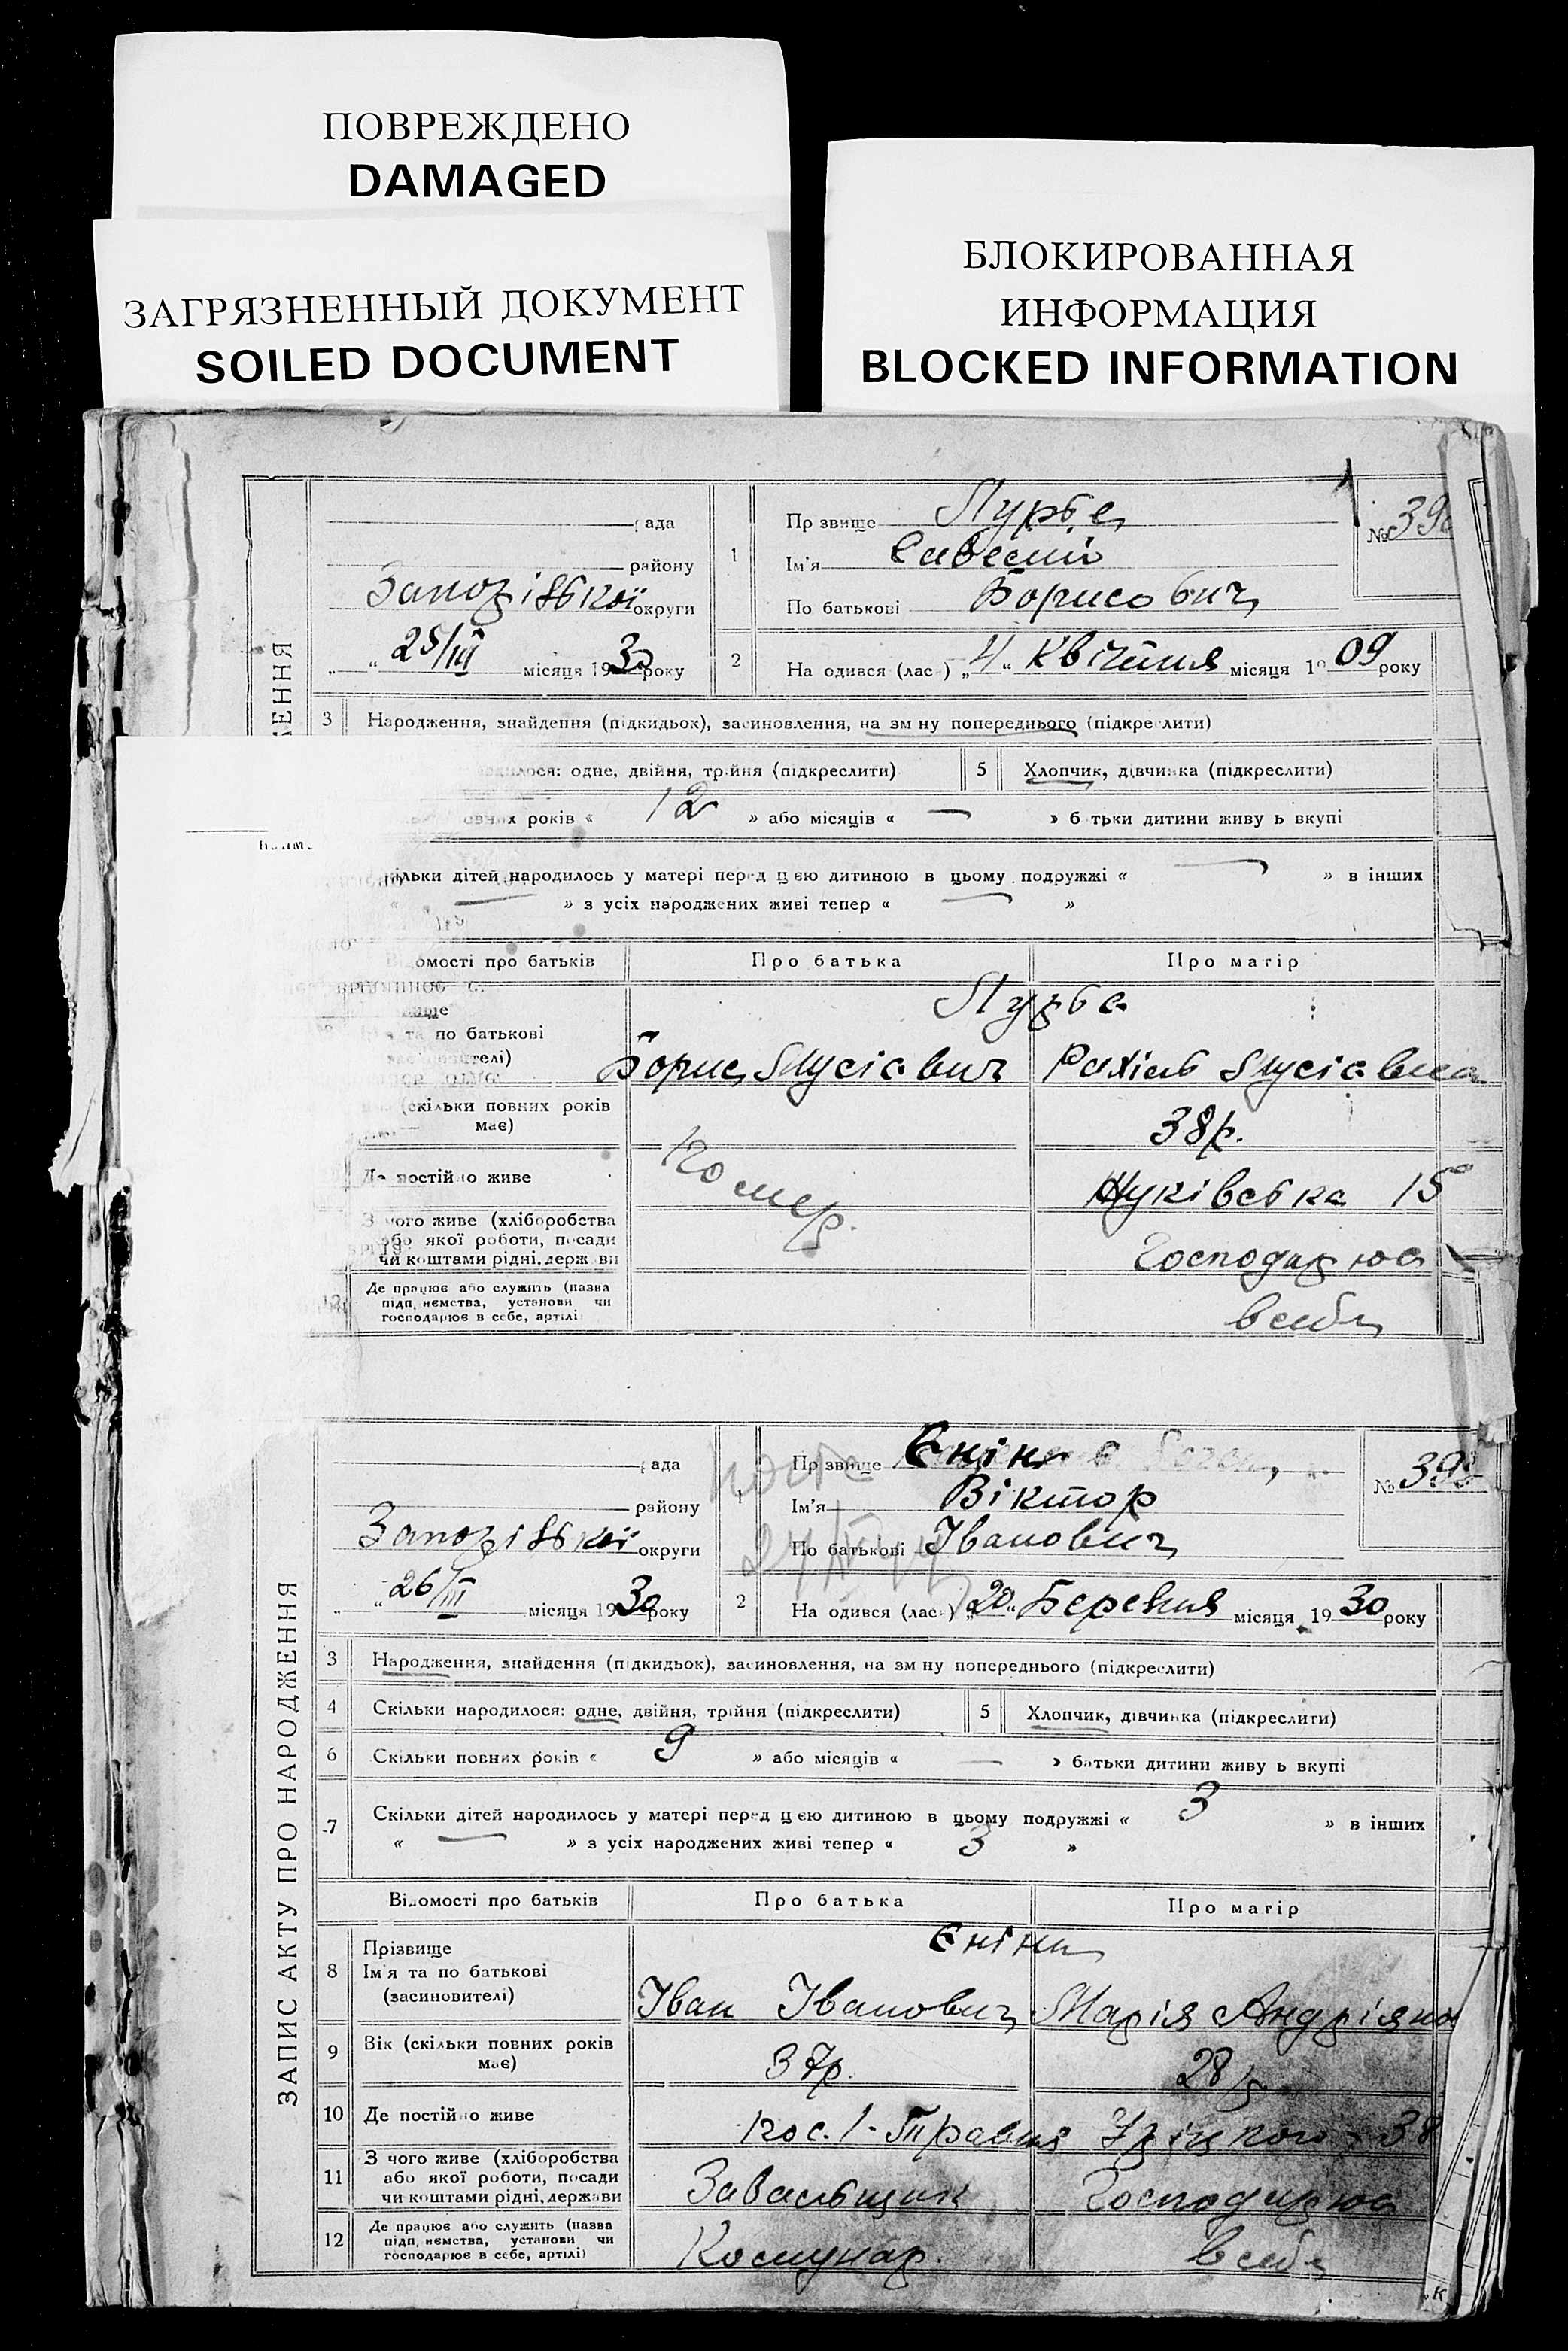 ПОВРЕЖДЕНО
DAMAGED
ЗАГРЯЗНЕННЫЙ ДОКУМЕНТ
SOILED DOCUMENT
БЛОКИРОВАННАЯ
ИНФОРМАЦИЯ
BLOCKED INFORMATION
ада
району
округи
„ “ 25/III місяця 1930 року
1
Пр звище Лурье
Ім'я
По батькові Борисович
№ 39
2 На одився (лас ) „4“ Квітня місяця 1909 року
ЕННЯ
3 Народження, знайдення (підкидьок), засиновлення, на зм ну попереднього (підкреслити)
одилося: одне, двійня, трійня (підкреслити) 5 Хлопчик, дівчинка (підкреслити)
овних років « 12 » або місяців « — » б тьки дитини живу ь вкупі
ільки дітей народилось у матері перед ц ею дитиною в цьому подружжі « — » в інших
« — » з усіх народжених живі тепер « — »
Відомості про батьків Про батька Про матір
Лурье
по батькові
Борис Мусієвич Рахіль Мусієвна
(скільки повних років
має)
38 р.
Де постійно живе
15
З чого живе (хліборобства
або якої роботи, посади
чи коштами рідні, держ ви
Господарює
Де працює або служить (назва
підп, иємства, установи чи
господарює в себе, артілі
в себе
ЗАПИС АКТУ ПРО НАРОДЖЕННЯ
ада
району
округи
„ “ 26/III місяця 1930 року
Прізвище Єнін
Ім'я Віктор
По батькові Іванович
№ 39
2 На одився (лас ) „20“ Березня місяця 1930 року
3 Народження, знайдення (підкидьок), засиновлення, на зм ну попереднього (підкреслити)
4 Скільки народилося: одне, двійня, трійня (підкреслити) 5 Хлопчик, дівчинка (підкреслити)
6 Скільки повних років « 9 » або місяців « — » батьки дитини живу ь вкупі
7 Скільки дітей народилось у матері перед ц ею дитиною в цьому подружжі « 3 » в інших
« — » з усіх народжених живі тепер « 3 »
Відомості про батьків Про батька Про матір
8 Прізвище
Ім'я та по батькові
(засиновителі)
Єнини
Іван Іванович Марія Андріяна
9 Вік (скільки повних років
має)
37 р. 28 р
10 Де постійно живе пос. 1-Травня 38
11 З чого живе (хліборобства
або якої роботи, посади
чи коштами рідні, держави
Завальщик Господарює
12 Де працює або служить (назва
підп, иємства, установи чи
господарює в себе, артілі)
Комунар. в себе